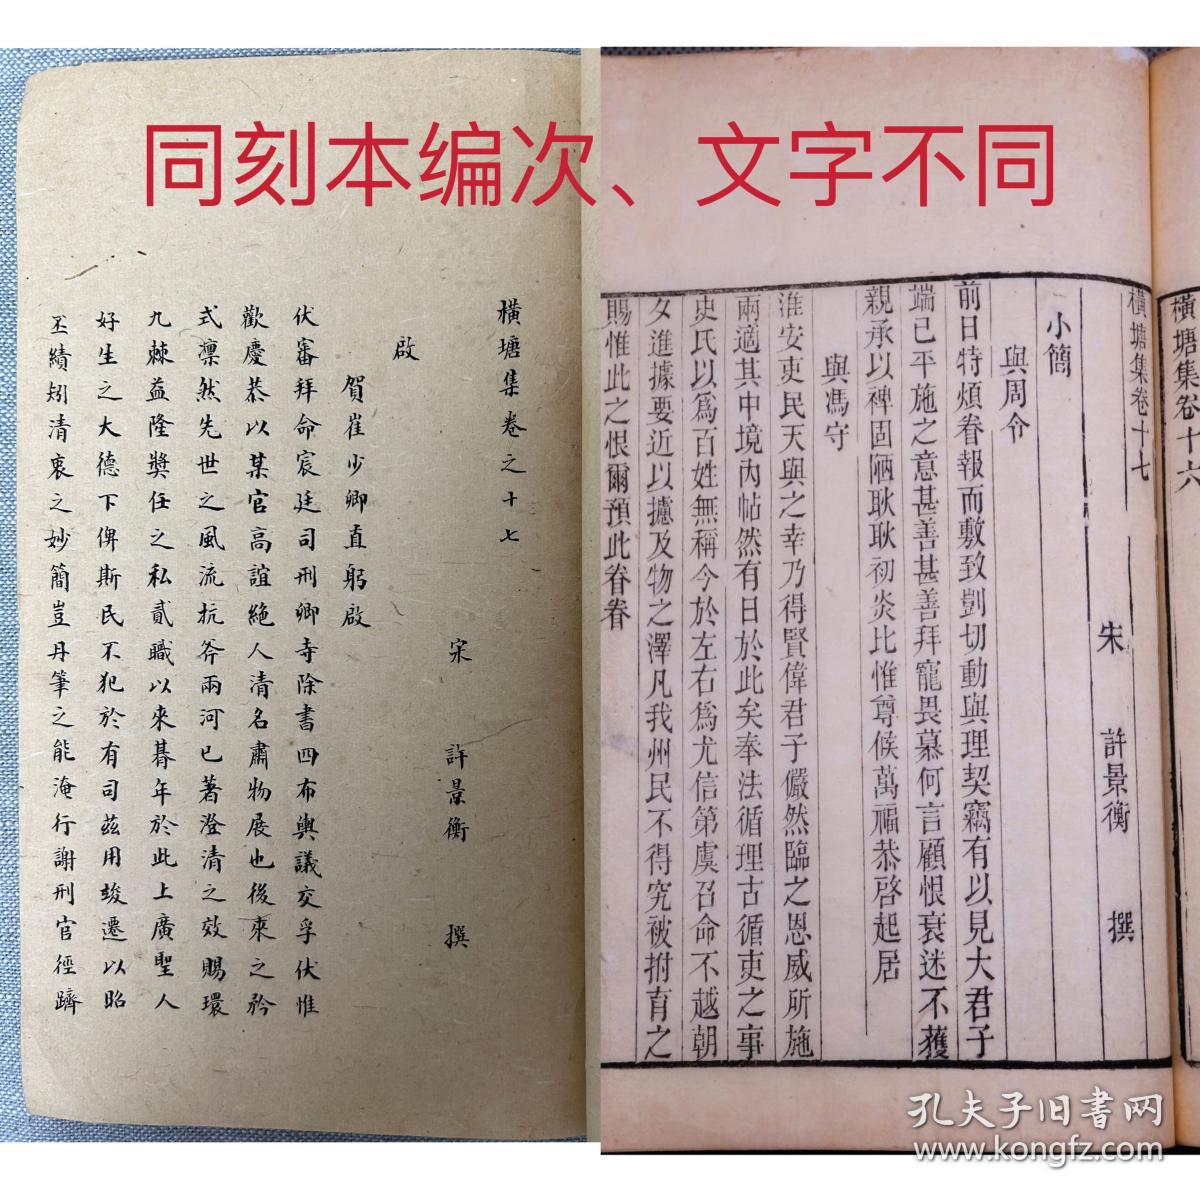 同刻本编次、文字不同
橫塘集卷之十七
宋 許景衡 撰
啟
賀崔少卿直躬啟
伏審拜命宸廷司刑卿寺除書四布輿議交孚伏惟
歡慶恭以某官高誼絶人清名肅物展也後來之矜
式凛然先世之風流抗斧兩河已著澄清之效賜環
九棘益隆獎任之私貳職以來朞年於此上廣聖人
好生之大德下俾斯民不犯於有司茲用峻遷以昭
丕績矧清衷之妙簡豈丹筆之能淹行謝刑官徑躋
橫塘集卷十六
橫塘集卷十七
宋 許景衡 撰
小簡
與周令
前日特煩眷報而敷致剴切動與理契竊有以見大君子
端已平施之意甚善甚善拜寵畏慕何言顧恨衰迷不獲
親承以裨固陋耿耿初炎比惟尊候萬福恭啓起居
與馮守
淮安吏民天與之幸乃得賢偉君子儼然臨之恩威所施
兩適其中境內帖然有日於此矣奉法循理古循吏之事
史氏以爲百姓無稱今於左右爲尤信第虞召命不越朝
夕進據要近以攄及物之澤凡我州民不得究被拊育之
賜惟此之恨爾預此眷眷
孔夫子旧书网
www.kongfz.com